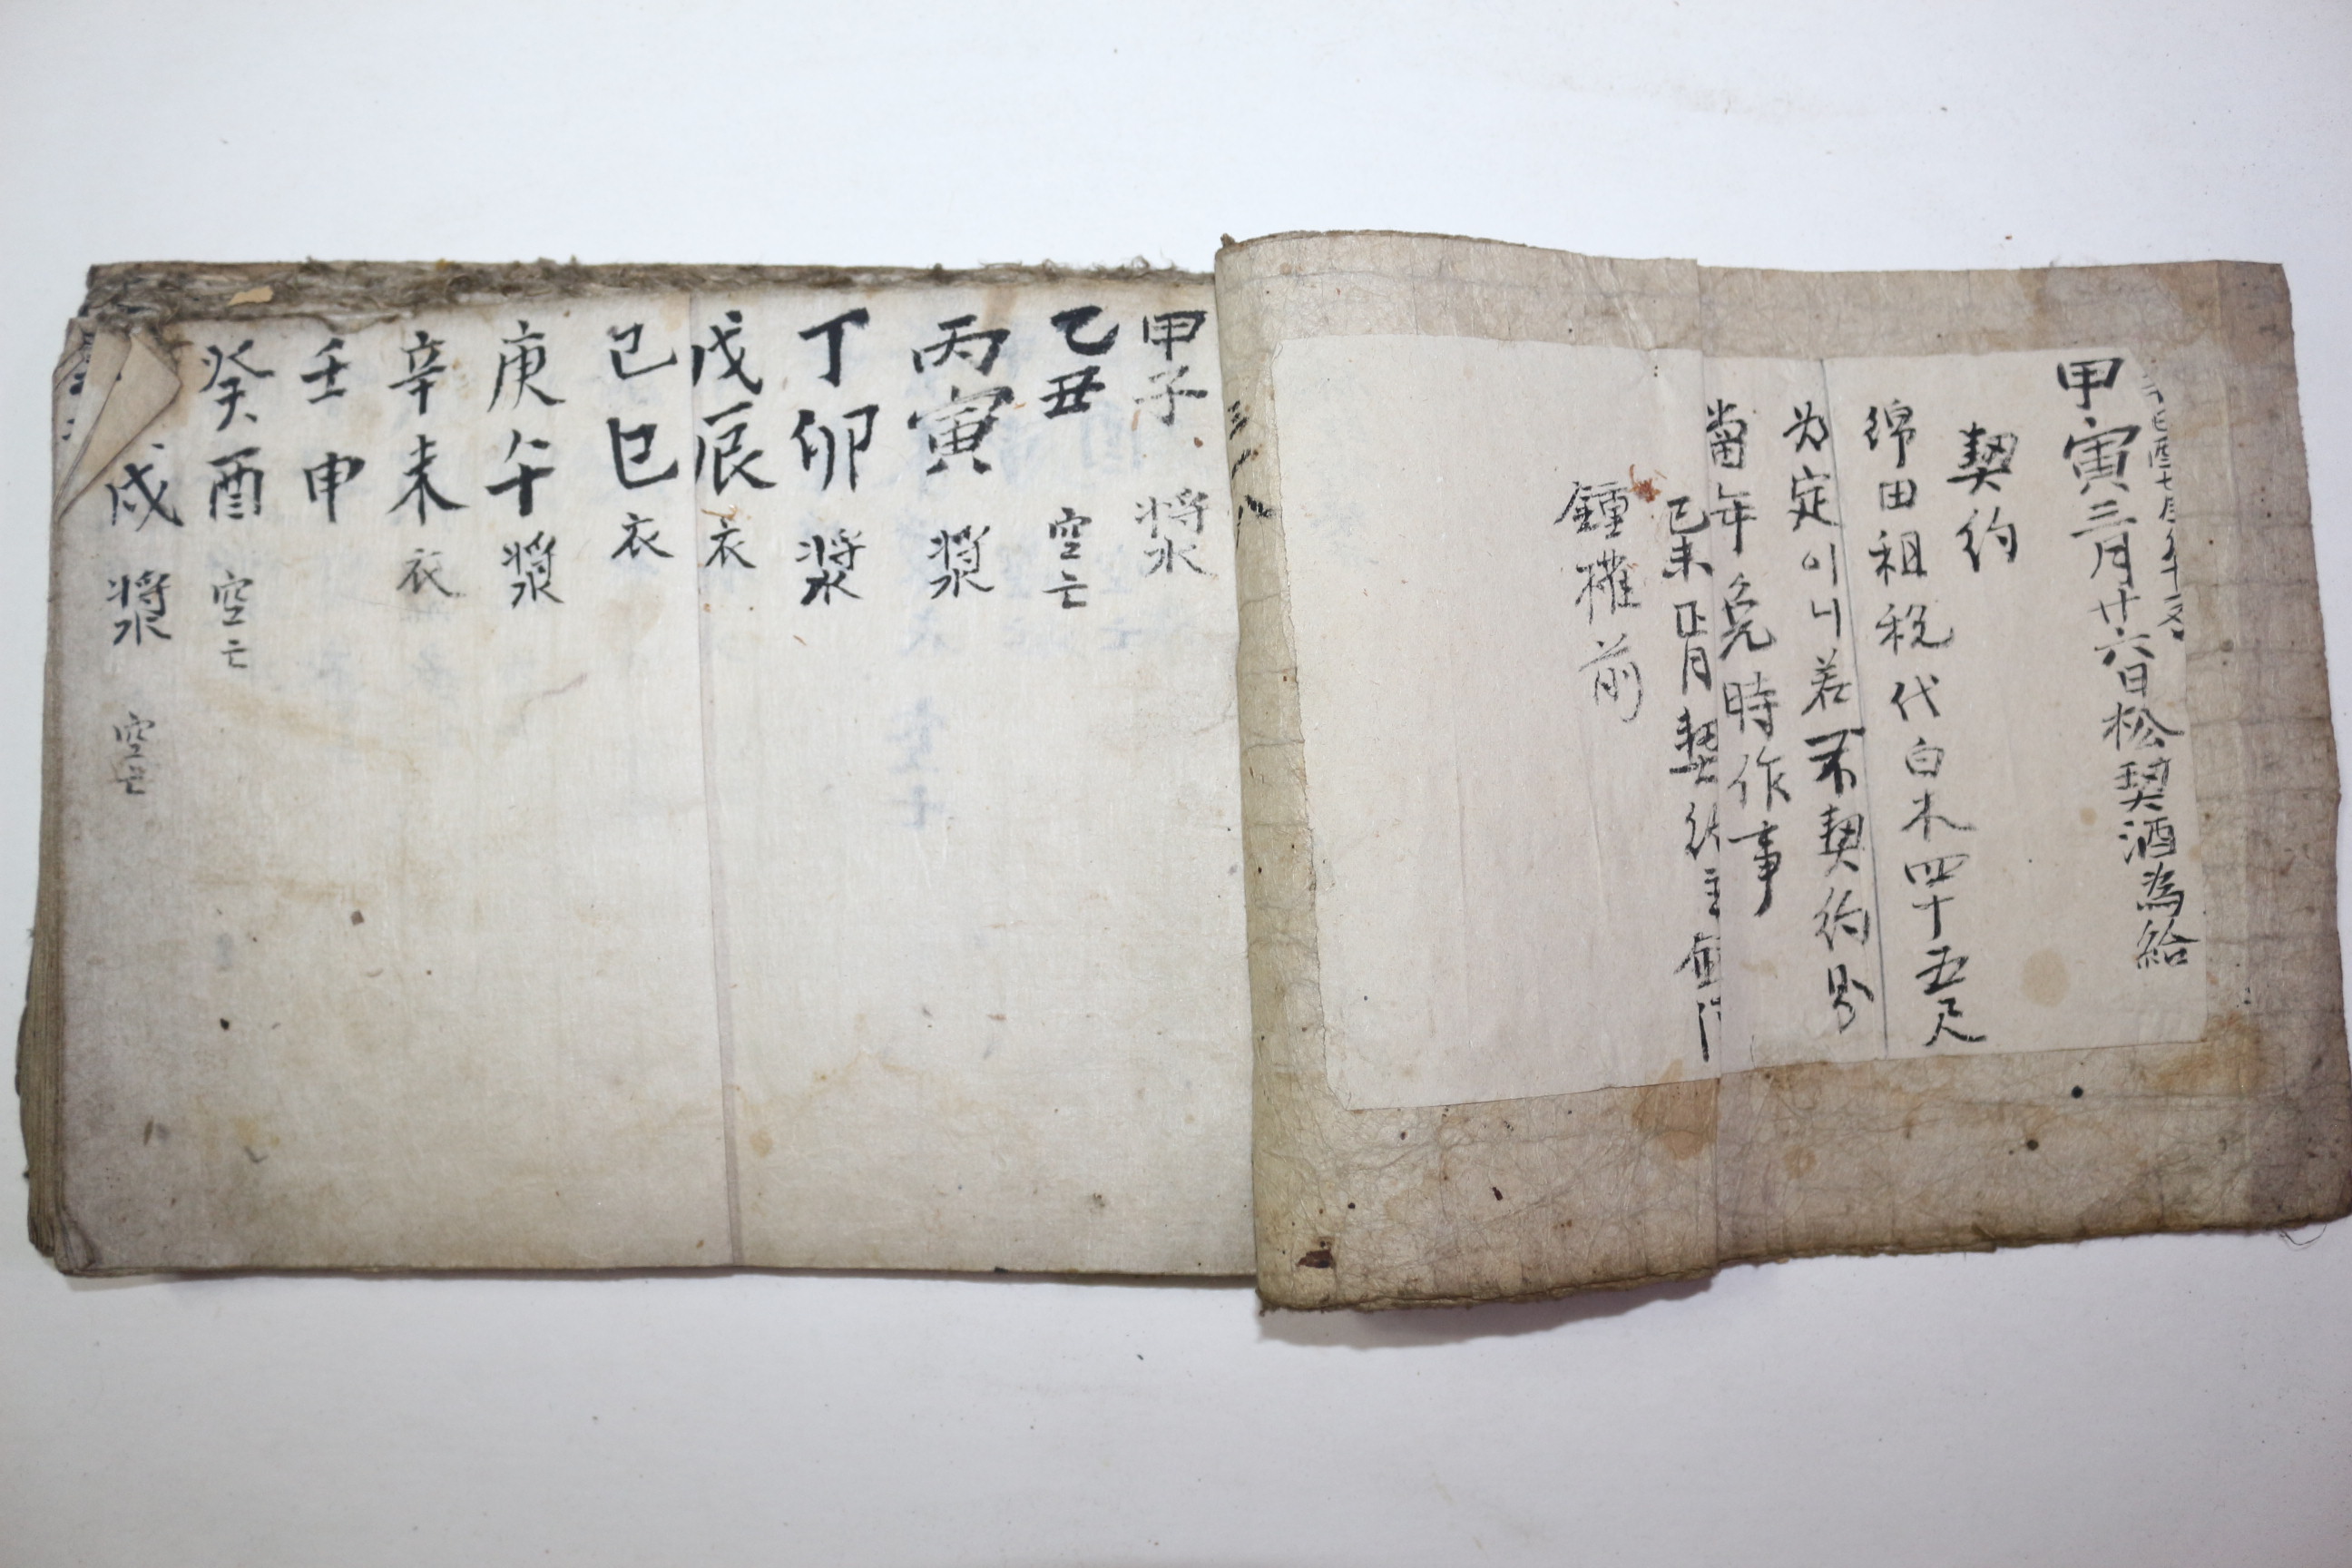 甲寅三月廿六日松契酒為給
契約
綿田租税代白木四十五尺
为定이니若不契約
當年免時作事
己未正月契約主
鍾權前
甲子 漿
乙丑 空亡
丙寅 漿
丁卯 漿
戊辰 衣
己巳 衣
庚午 漿
辛未 衣
壬申
癸酉 空亡
戌 漿 空亡